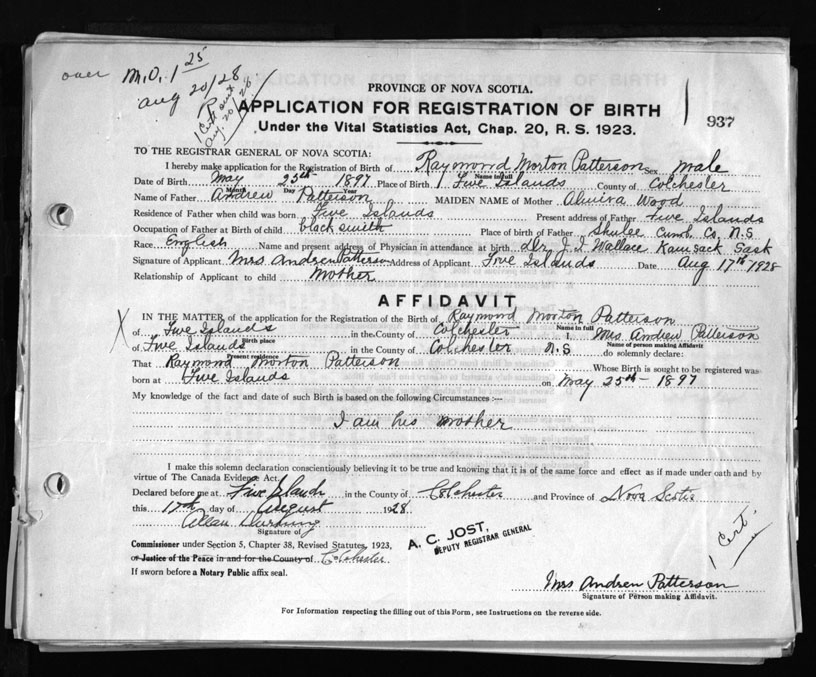 over M.O. 1 25
Aug 20/28
1 Cert sent
Aug. 20/28
PROVINCE OF NOVA SCOTIA.
APPLICATION FOR REGISTRATION OF BIRTH
Under the Vital Statistics Act, Chap. 20, R. S. 1923.
937
TO THE REGISTRAR GENERAL OF NOVA SCOTIA:
I hereby make application for the Registration of Birth of Raymond Morton Patterson Sex male
Name in full
Date of Birth May 25th 1897 Place of Birth Five Islands County of Colchester
Month Day Year
Name of Father Andrew Patterson MAIDEN NAME of Mother Almira Wood
Residence of Father when child was born Five Islands Present address of Father Five Islands
Occupation of Father at Birth of child blacksmith Place of birth of Father Shulee Cumb. Co, N.S
Race English Name and present address of Physician in attendance at birth dr, J. J. Wallace Kamsack Sask
Signature of Applicant Mrs Andrew Patterson Address of Applicant Five Islands Date Aug 17th 1928
Relationship of Applicant to child Mother
AFFIDAVIT
IN THE MATTER of the application for the Registration of the Birth of Raymond Morton Patterson
Name in full
X of Five Islands in the County of Colchester I, Mrs Andrew Patterson
Birth place Name of person making Affidavit
of Five Islands in the County of Colchester N.S do solemnly declare:
Present residence
That Raymond Morton Patterson Whose Birth is sought to be registered was
born at Five Islands on May 25th - 1897
My knowledge of the fact and date of such Birth is based on the following Circumstances :—
I am his mother
I make this solemn declaration conscientiously believing it to be true and knowing that it is of the same force and effect as if made under oath and by
virtue of The Canada Evidence Act.
Declared before me at Five Islands in the County of Colchester and Province of Nova Scotia
this 17th day of August 1928.
Allan
Signature of
Commissioner under Section 5, Chapter 38, Revised Statutes, 1923,
or Justice of the Peace in and for the County of Colchester
If sworn before a Notary Public affix seal.
A. C. JOST,
DEPUTY REGISTRAR GENERAL
1 Cert.
Mrs Andrew Patterson
Signature of Person making Affidavit.
For Information respecting the filling out of this Form, see Instructions on the reverse side.